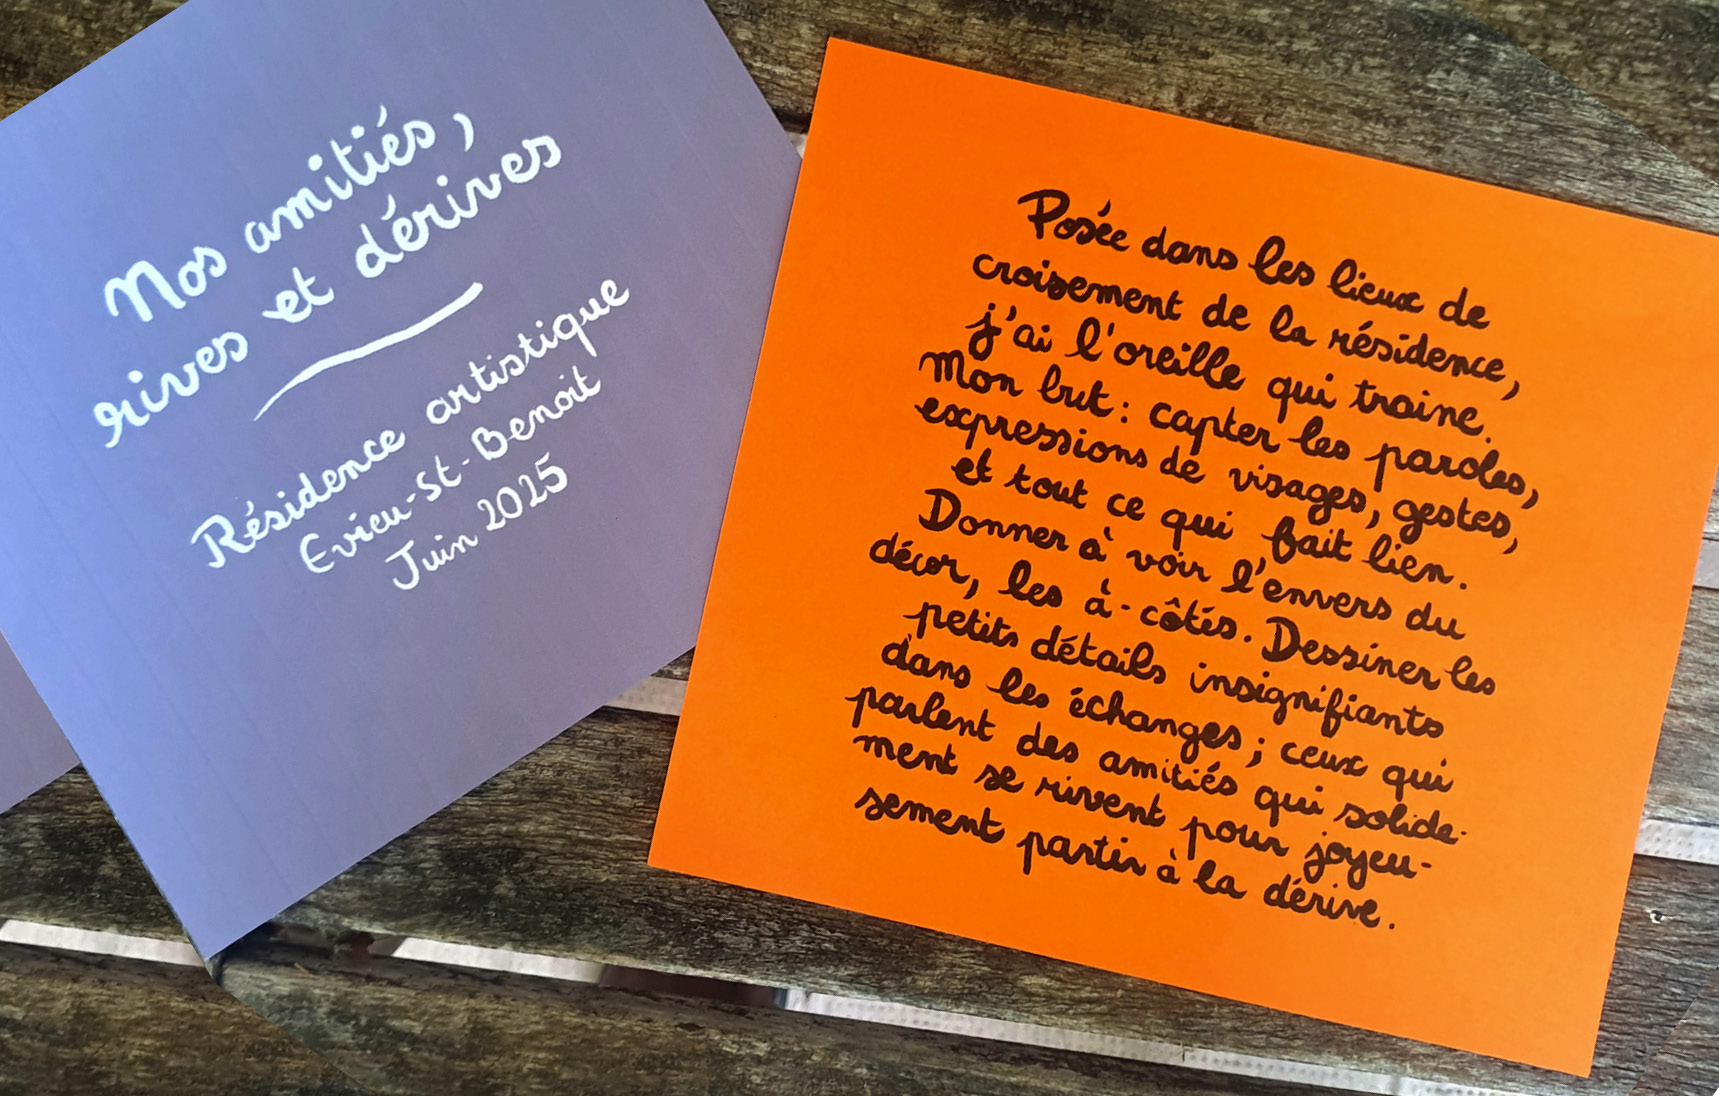 Nos amitiés,
rives et dérives
Résidence artistique
Evieu-St-Benoit
Juin 2025
Posée dans les lieux de
croisement de la résidence,
j'ai l'oreille qui traine.
Mon but : capter les paroles,
expressions de visages, gestes,
et tout ce qui fait lien.
Donner à voir l'envers du
décor, les à-côtés. Dessiner les
petits détails insignifiants
dans les échanges ; ceux qui
parlent des amitiés qui solide-
ment se rivent pour joyeu-
sement partir à la dérive.